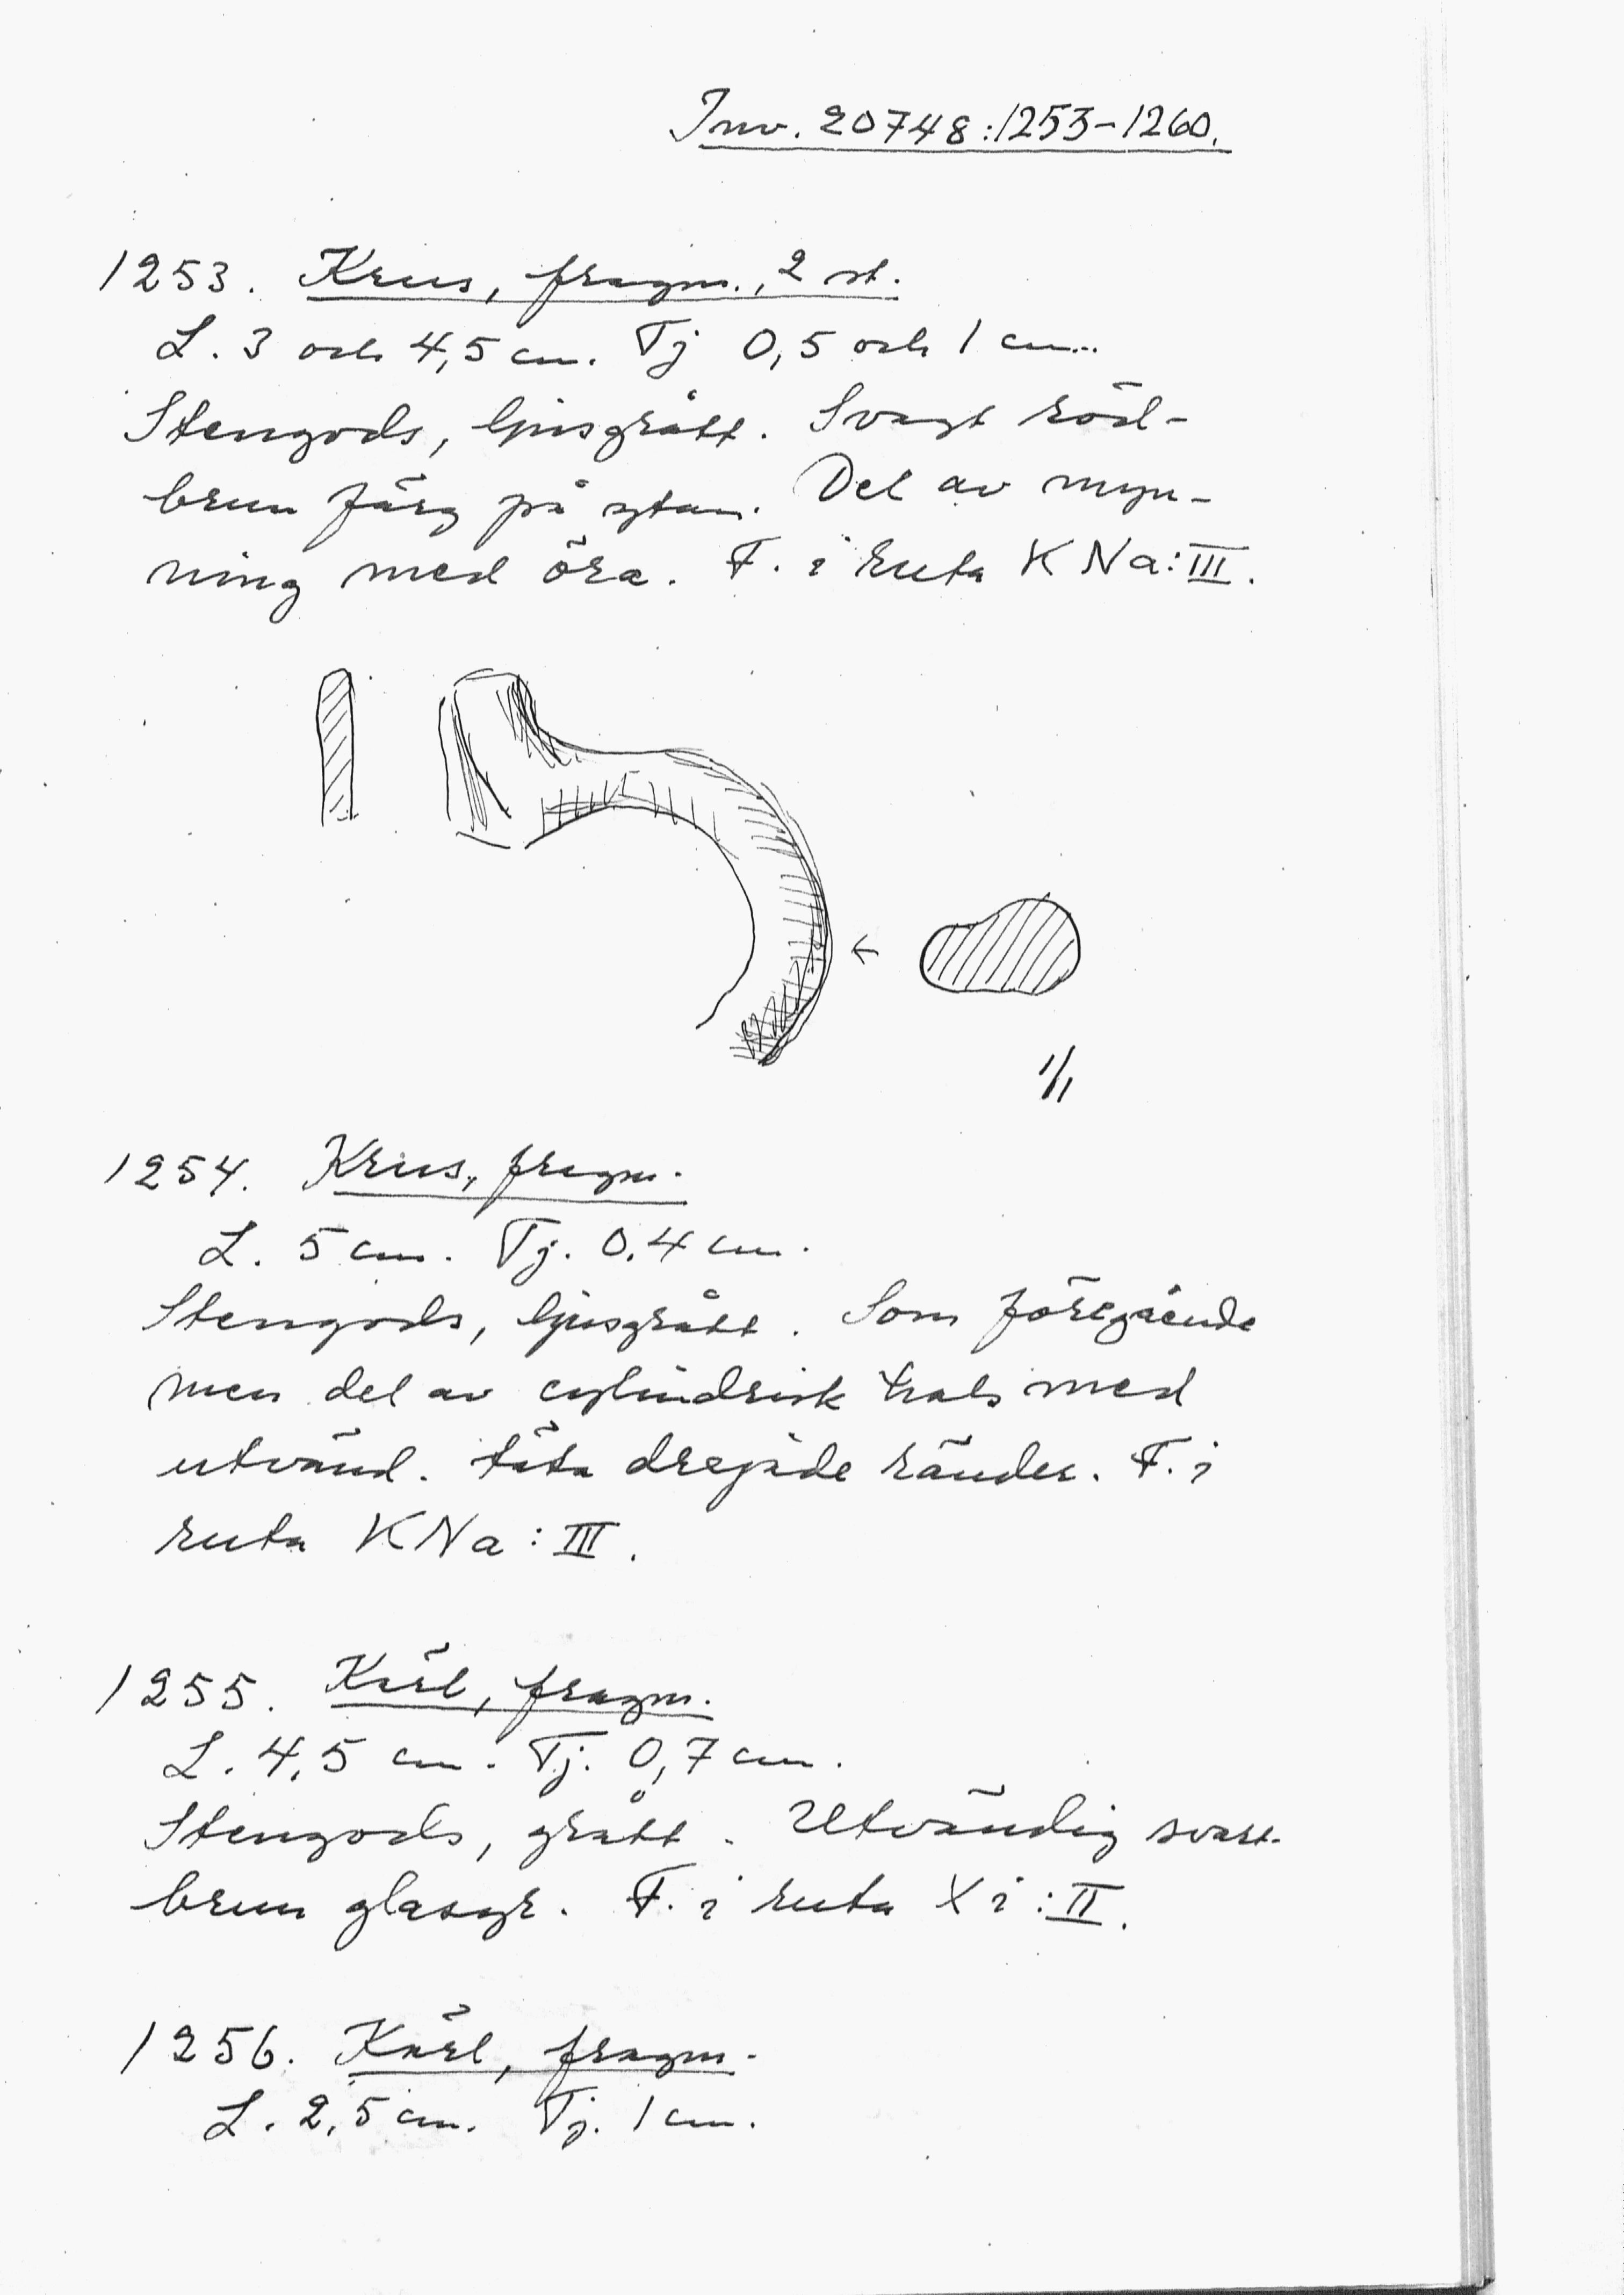 Inv. 20748:1253-1260.
1253. Krus, fragm., 2 st.
L. 3 och 4,5 cm. Tj 0,5 och 1 cm.
Stengods, ljusgrått. Svagt röd-
brun färg på ytan. Del av myn-
ning med öra. F. i ruta KNa:III.
1/1
1254. Krus, fragm.
L. 5 cm. Tj. 0,4 cm.
Stengods, ljusgrått. Som föregående
men del av cylindrisk hals med
utvänd. täta drejade ränder. F. i
ruta KNa:III.
1255. Kärl, fragm.
L. 4,5 cm. Tj. 0,7 cm.
Stengods, grått. Utvändig svart-
brun glasyr. F. i ruta Xi:II.
1256. Kärl, fragm.
L. 2,5 cm. Tj. 1 cm.